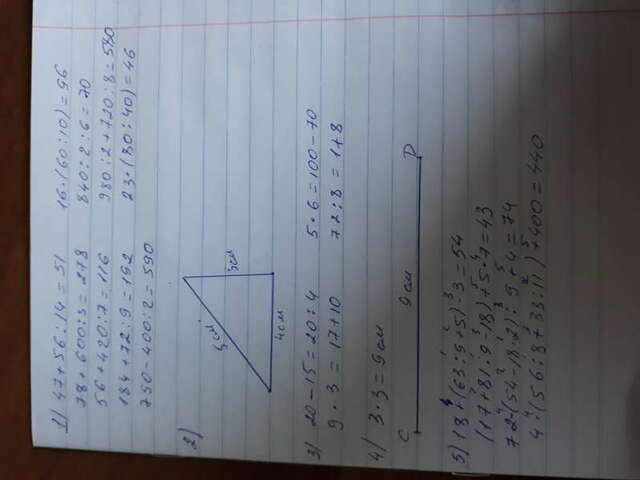 1) 47+56:14=51    16·(60:10)=96
78+600:3=278    840:2:6=70
56+420:7=116    980:2+720:8=580
184+72:9=192    23·(80:40)=46
790-400:2=590
2)
5см
3см
4см
3) 20-15=20:4    5·6=100-70
9·3=17+10    72:8=1+8
4) 3·3=9см
C 9см D
5) 18+(63:9+5)·3=54
(17+81:9-18)+5·7=43
72-(54-18:2):9+4=74
4·(56:8+33:11)+400=440